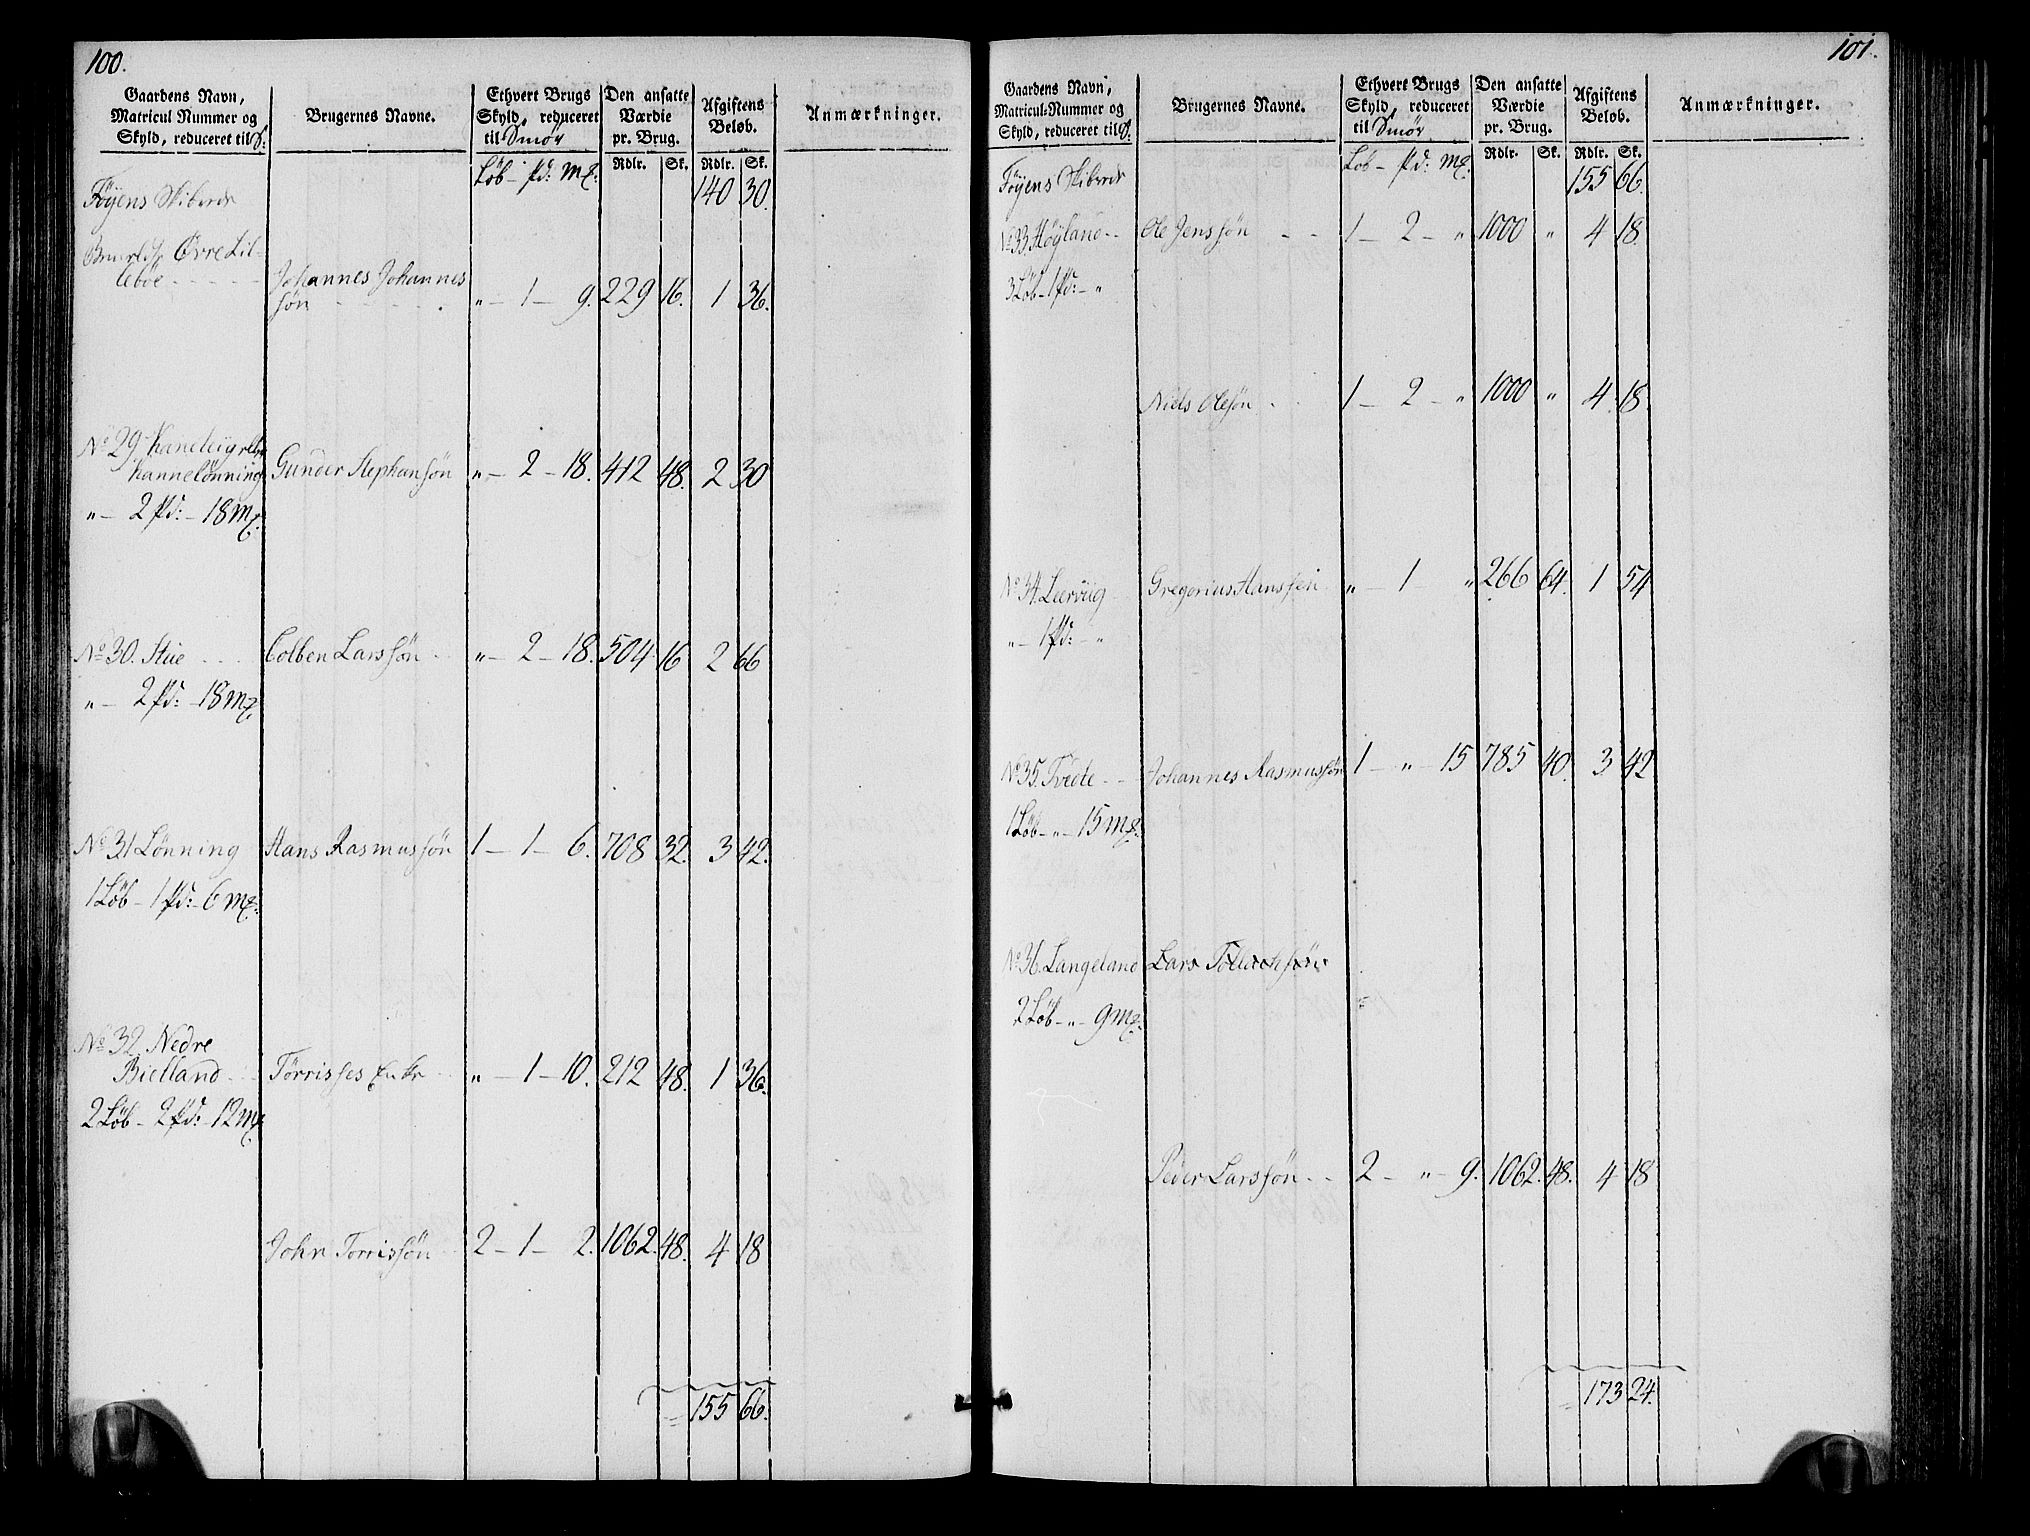 100.
Gaardens Navn, Matricul Nummer og Skyld, reduceret til
Brugernes Navne.
Ethvert Brugs Skyld, reduceret til Smør
Den ansatte Værdie pr. Brug.
Afgiftens Beløb.
Anmærkninger.
Løb - pd: mk:
Rdlr. Sk. Rdlr. Sk.
Föyens Skiberede 140 30.
Øvre Lil-
leböe - - - - Johannes Johannes
søn - - - - „ - 1 - 9. 229 16. 1 36.
No 29. Kaneteig
Kannelönning Gunder Stephansön „ - 2 - 18. 412 48. 2 30
„ - 2 pd: - 18 mk.
No 30. Stue - - - Colben Larssön - - „ - 2 - 18. 504 16 2 66
„ - 2 pd: - 18 mk.
No 31 Lönning Hans Rasmussön 1 - 1 - 6. 708 32. 3 42.
1 Löb - 1 pd: - 6 mk.
No 32. Nedre
Bielland - - Törrisses Enke - - „ - 1 - 10. 212 48. 1 36.
2 Löb - 2 pd: - 12 mk.
John Torrissön - - 2 - 1 - 2. 1062. 48. 4 18
= 155 66.
101.
Gaardens Navn, Matricul-Nummer og Skyld, reduceret til
Brugernes Navne.
Ethvert Brugs Skyld, reduceret til Smør
Den ansatte Værdie pr. Brug.
Afgiftens Beløb.
Anmærkninger.
Løb - pd: mk:
Rdlr. Sk. Rdlr. Sk.
Föyens Skiberede 155 66.
No 33. Höyland - - Ole Jenssön - - 1 - 2 - „ 1000 „ 4 18.
3 Löb - 1 pd: - „
Niels Olesön - - 1 - 2 - „ 1000 „ 4 18.
No 34. Leervüg Gregorius Hanssön „ - 1 - „ 266 64. 1 54
„ - 1 pd: - „
No 35. Tvedte - - Johannes Rasmussön 1 - „ - 15 785 40. 3 42
1 Löb - „ - 15 mk.
No 36. Langeland Lars Tollachsön
2 Löb - „ - 9 mk.
Peder Larssön - - 2 - „ - 9. 1062. 48. 4 18
= 173 24.